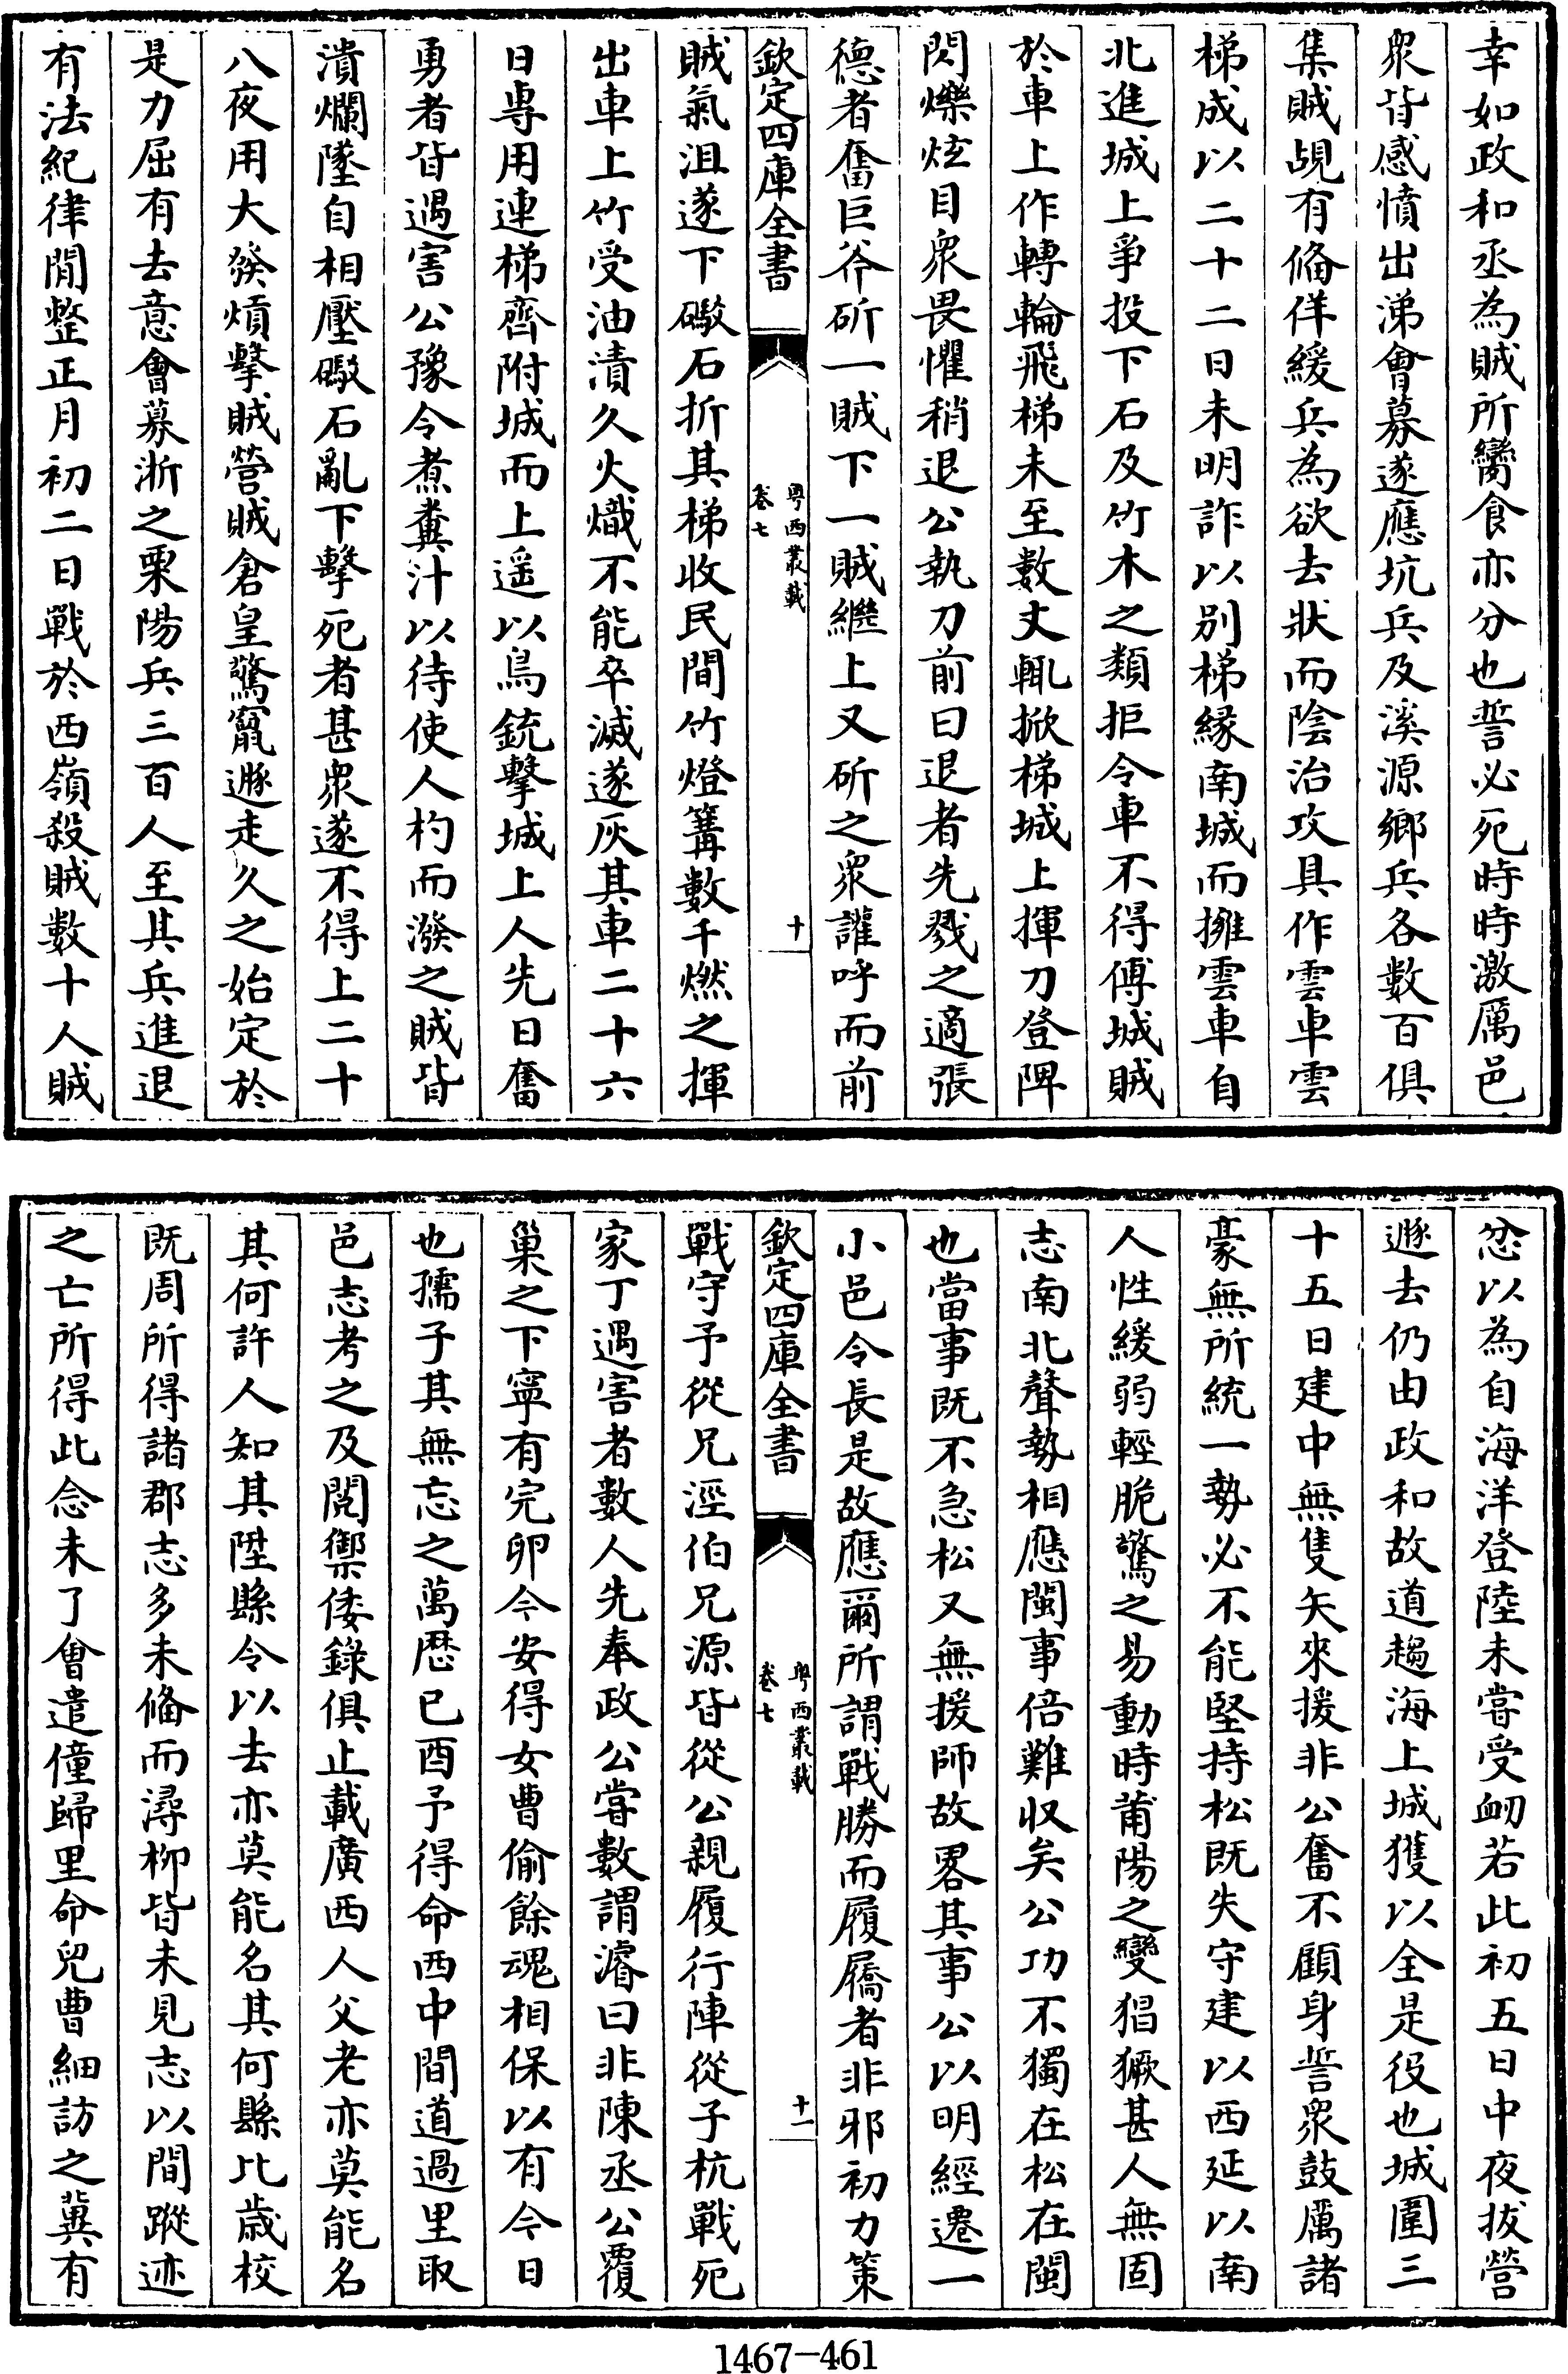 幸如政和丞為賊所臠食亦分也誓必死時時激厲邑
衆皆感憤出涕會募遂應坑兵及溪源鄉兵各數百俱
集賊覘有俻佯緩兵為欲去狀而陰治攻具作雲車雲
梯成以二十二日未明詐以别梯縁南城而擁雲車自
北進城上爭投下石及竹木之類拒令車不得傅城賊
於車上作轉輪飛梯未至數丈輒掀梯城上揮刀登陴
閃爍炫目衆畏懼稍退公執刀前曰退者先戮之適張
德者奮巨斧斫一賊下一賊繼上又斫之衆讙呼而前
欽定四庫全書
粤西叢載
卷七
十
賊氣沮遂下礮石折其梯收民間竹燈篝數千燃之揮
出車上竹受油漬久火熾不能卒滅遂灰其車二十六
日専用連梯齊附城而上遥以鳥銃擊城上人先日奮
勇者皆遇害公豫令煮糞汁以待使人杓而潑之賊皆
潰爛墜自相壓礮石亂下擊死者甚衆遂不得上二十
八夜用大發熕擊賊營賊倉皇驚竄遯走久之始定於
是力屈有去意會募浙之栗陽兵三百人至其兵進退
有法紀律閒整正月初二日戰於西嶺殺賊數十人賊
忿以為自海洋登陸未嘗受衂若此初五日中夜拔營
遯去仍由政和故道趨海上城獲以全是役也城圍三
十五日建中無隻矢來援非公奮不顧身誓衆鼓厲諸
豪無所統一勢必不能堅持松既失守建以西延以南
人性緩弱輕脆驚之易動時莆陽之變猖獗甚人無固
志南北聲勢相應閩事倍難収矣公功不獨在松在閩
也當事既不急松又無援師故畧其事公以明經遷一
小邑令長是故應爾所謂戰勝而履屩者非邪初力策
欽定四庫全書
粤西叢載
卷七
十一
戰守予從兄淫伯兄源皆從公親履行陣從子杭戰死
家丁遇害者數人先奉政公嘗數謂濬曰非陳丞公覆
巢之下寧有完卵今安得女曹偷餘魂相保以有今日
也孺子其無忘之萬厯已酉予得命西中間道過里取
邑志考之及閲禦倭錄俱止載廣西人父老亦莫能名
其何許人知其陞縣令以去亦莫能名其何縣比歲校
既周所得諸郡志多未俻而潯柳皆未見志以間蹤迹
之亡所得此念未了會遣僮歸里命兒曹細訪之冀有
1467—461